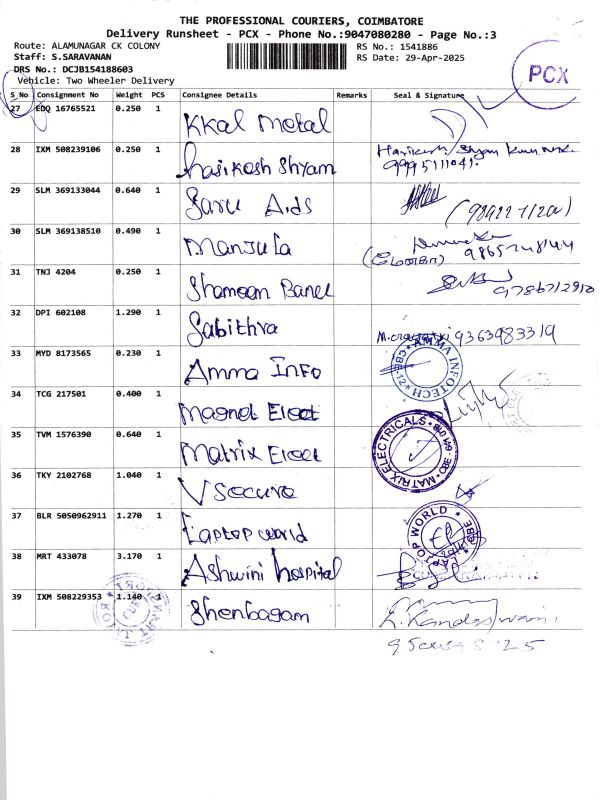 THE PROFESSIONAL COURIERS, COIMBATORE
Delivery Runsheet - PCX - Phone No.:9047080280 - Page No.:3
Route: ALAMUNAGAR CK COLONY
RS No.: 1541886
Staff: S.SARAVANAN
RS Date: 29-Apr-2025
DRS No.: DCJB154188603
Vehicle: Two Wheeler Delivery
PCX
S_No Consignment No Weight PCS Consignee Details Remarks Seal & Signature
27 EDQ 16765521 0.250 1 KKal Metal
28 IXM 508239106 0.250 1 Harikesh Shyam
9995111041.
29 SLM 369133044 0.640 1 Saru Aids
30 SLM 369138510 0.490 1 Manjula
31 TNJ 4204 0.250 1 Shameem Banu
32 DPI 602108 1.290 1 Sabithra 9363983319
33 MYD 8173565 0.230 1 Amma Info AMMA INFOTECH CBE-12
34 TCG 217501 0.400 1 Magnet Elect
35 TVM 1576390 0.640 1 Matrix Elect MATRIX ELECTRICALS CBE - 641 018
36 TKY 2102768 1.040 1 V Secure
37 BLR 5050962911 1.270 1 Laptop world LAPTOP WORLD CBE
38 MRT 433078 3.170 1 Ashwini hospital
39 IXM 508229353 1.140 1 Shenbagam